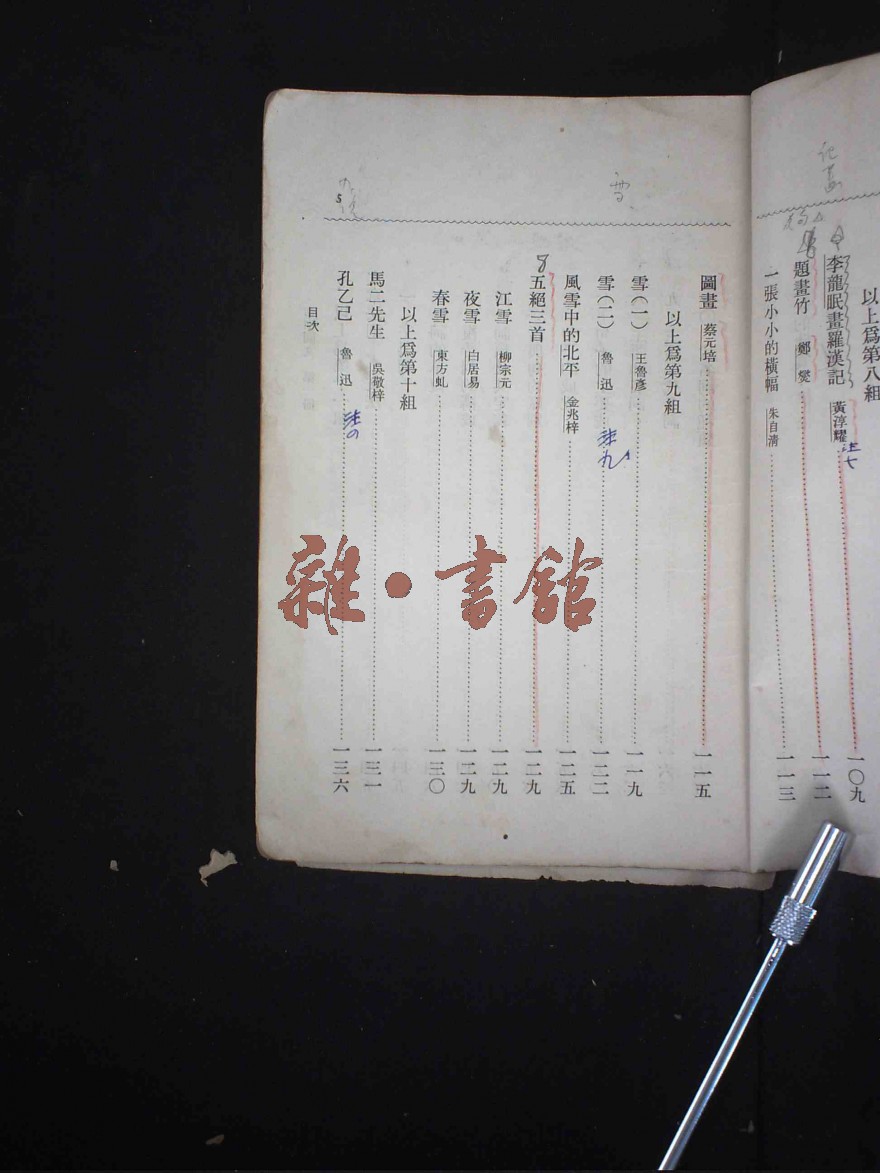 以上爲第八組
李龍眠畫羅漢記 黃淳耀 一〇九
題畫竹 鄭燮 一一二
一張小小的橫幅 朱自清 一一三
圖畫 蔡元培 一一五
以上爲第九組
雪(一) 王魯彥 一一九
雪(二) 魯迅 一二二
風雪中的北平 金兆梓 一二五
8
五絕三首 一二九
江雪 柳宗元 一二九
夜雪 白居易 一二九
春雪 東方虬 一三〇
以上爲第十組
馬二先生 吳敬梓 一三一
孔乙己 魯迅 一三六
目次
雜·書館